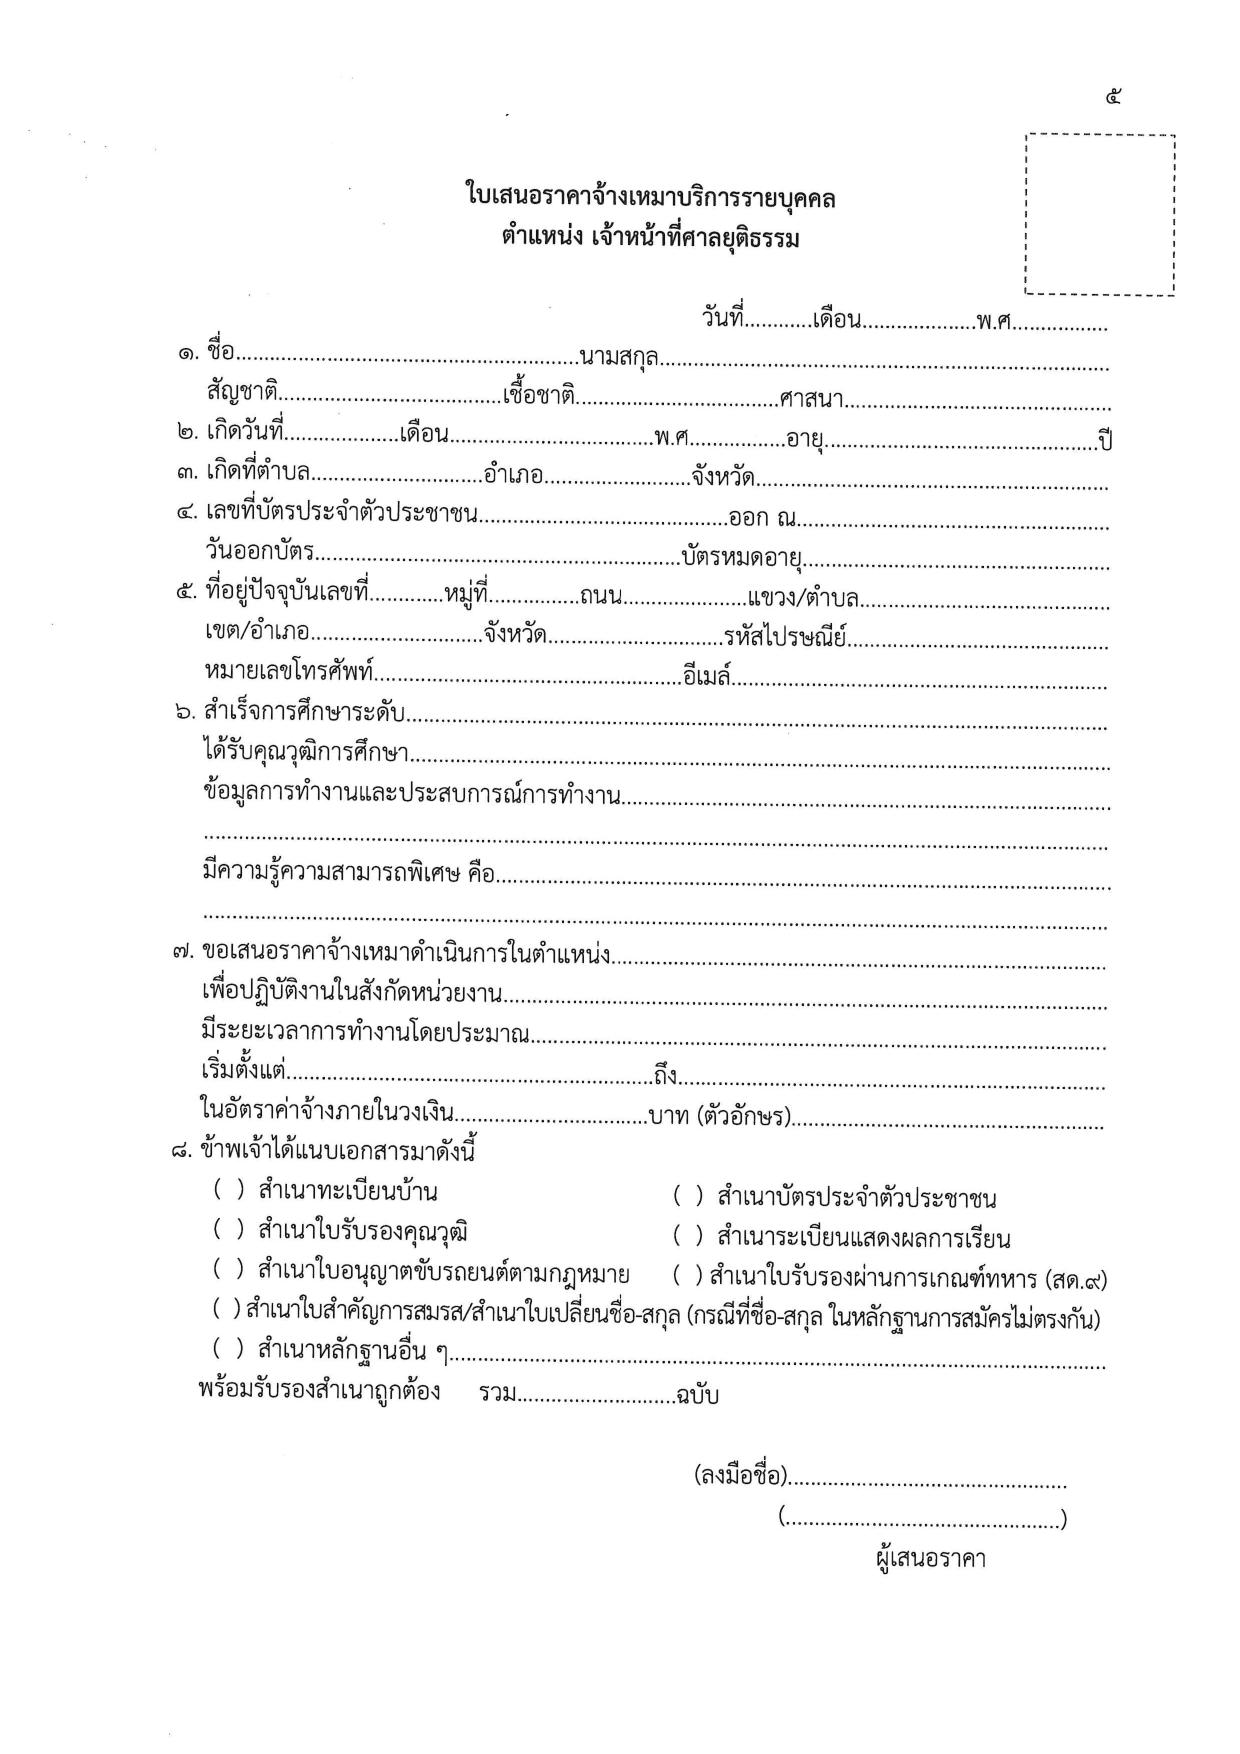 ๕
ใบเสนอราคาจ้างเหมาบริการรายบุคคล
ตำแหน่ง เจ้าหน้าที่ศาลยุติธรรม
วันที่............เดือน....................พ.ศ.................
๑. ชื่อ............................................................นามสกุล...............................................................................
สัญชาติ.......................................เชื้อชาติ....................................ศาสนา...............................................
๒. เกิดวันที่....................เดือน....................................พ.ศ.................อายุ................................................ปี
๓. เกิดที่ตำบล..............................อำเภอ..........................จังหวัด..............................................................
๔. เลขที่บัตรประจำตัวประชาชน............................................ออก ณ.......................................................
วันออกบัตร................................................................บัตรหมดอายุ......................................................
๕. ที่อยู่ปัจจุบันเลขที่.............หมู่ที่................ถนน......................แขวง/ตำบล............................................
เขต/อำเภอ..............................จังหวัด...............................รหัสไปรษณีย์..............................................
หมายเลขโทรศัพท์......................................................อีเมล์..................................................................
๖. สำเร็จการศึกษาระดับ...........................................................................................................................
ได้รับคุณวุฒิการศึกษา...........................................................................................................................
ข้อมูลการทำงานและประสบการณ์การทำงาน......................................................................................
................................................................................................................................................................
มีความรู้ความสามารถพิเศษ คือ............................................................................................................
................................................................................................................................................................
๗. ขอเสนอราคาจ้างเหมาดำเนินการในตำแหน่ง.......................................................................................
เพื่อปฏิบัติงานในสังกัดหน่วยงาน..........................................................................................................
มีระยะเวลาการทำงานโดยประมาณ.....................................................................................................
เริ่มตั้งแต่................................................................ถึง...........................................................................
ในอัตราค่าจ้างภายในวงเงิน..................................บาท (ตัวอักษร).......................................................
๘. ข้าพเจ้าได้แนบเอกสารมาดังนี้
( ) สำเนาทะเบียนบ้าน ( ) สำเนาบัตรประจำตัวประชาชน
( ) สำเนาใบรับรองคุณวุฒิ ( ) สำเนาระเบียนแสดงผลการเรียน
( ) สำเนาใบอนุญาตขับรถยนต์ตามกฎหมาย ( ) สำเนาใบรับรองผ่านการเกณฑ์ทหาร (สด.๙)
( ) สำเนาใบสำคัญการสมรส/สำเนาใบเปลี่ยนชื่อ-สกุล (กรณีที่ชื่อ-สกุล ในหลักฐานการสมัครไม่ตรงกัน)
( ) สำเนาหลักฐานอื่น ๆ...................................................................................................................
พร้อมรับรองสำเนาถูกต้อง รวม............................ฉบับ
(ลงมือชื่อ).................................................
(................................................)
ผู้เสนอราคา